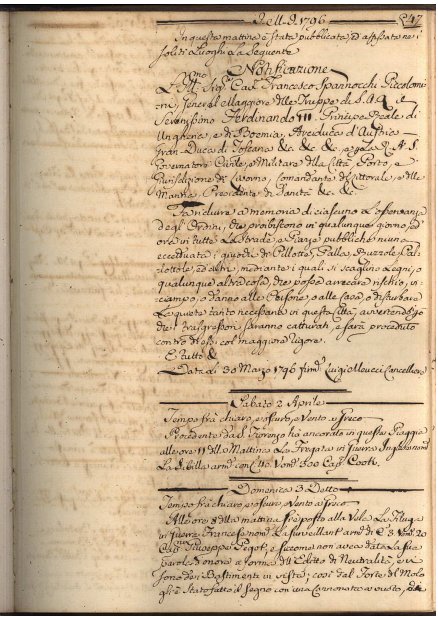 Dell'A. 1796 247
In questa mattina è stata pubblicata, ed affissata nei
soliti Luoghi la seguente
Notificazione
L'Illmo Sigre Cav. Francesco Spannocchi Piccolomi
ni, General Maggiore delle Truppe di S.A.R. il
Serenissimo Ferdinando III Principe Reale di
Ungheria, e di Boemia, Arciduca d'Austria
Gran Duca di Toscana &c. &c. &c. e per la R.A.S.
Governatore Civile, e Militare della Città, Porto, e
Giurisdizione di Livorno, Comandante del Littorale, e della
Marina, Presidente di Sanità &c. &c.
Fa ridurre a memoria di ciascuno la osservanza
degli Ordini, che proibiscono in qualunque giorno, ed
ora in tutte le Strade, e Piazze pubbliche niuna
eccettuata i giuochi di Pillotta, Palla, Ruzzole, Cal
ciottole, ed altri, mediante i quali si scaglino Legni, o
qualunque altra cosa, che possa arrecare rischio, in
ciampo, o danno alle Persone, o alle Case, o disturbare
la quiete tanto necessaria in questa Città, avvertendo che
i trasgressori saranno catturati, e sarà proceduto
contro di essi col maggiore rigore.
E tutto &
Data li 30 Marzo 1796 firmo Luigi Cancelliere
Sabato 2 Aprile
Tempo frà chiaro, e oscuro, e Vento a Greco
Procedente da S. Fiorenzo ha ancorato in questa Piaggia
alle ore 11 della Mattina la Fregata in Guerra Inglese nomta
La Sibilla armta con Cannoni Uomi 300 Capno Cook.
Domenica 3 Detto
Tempo frà chiaro, e oscuro, Vento a Greco
Alle ore 8 della mattina si è posto alla Vela la Filuga
in Guerra Francese nomta Le Surveillant armta di C. 3 Uomi 20
Capno Giuseppe Pegot, e siccome non avea data la sua
parola d'onore a forma dell'Editto di Neutralità, e vi
sono dei Bastimenti in vista, così dal Forte del Molo
gli è stato fatto il segno con una Cannonata a vuoto, che